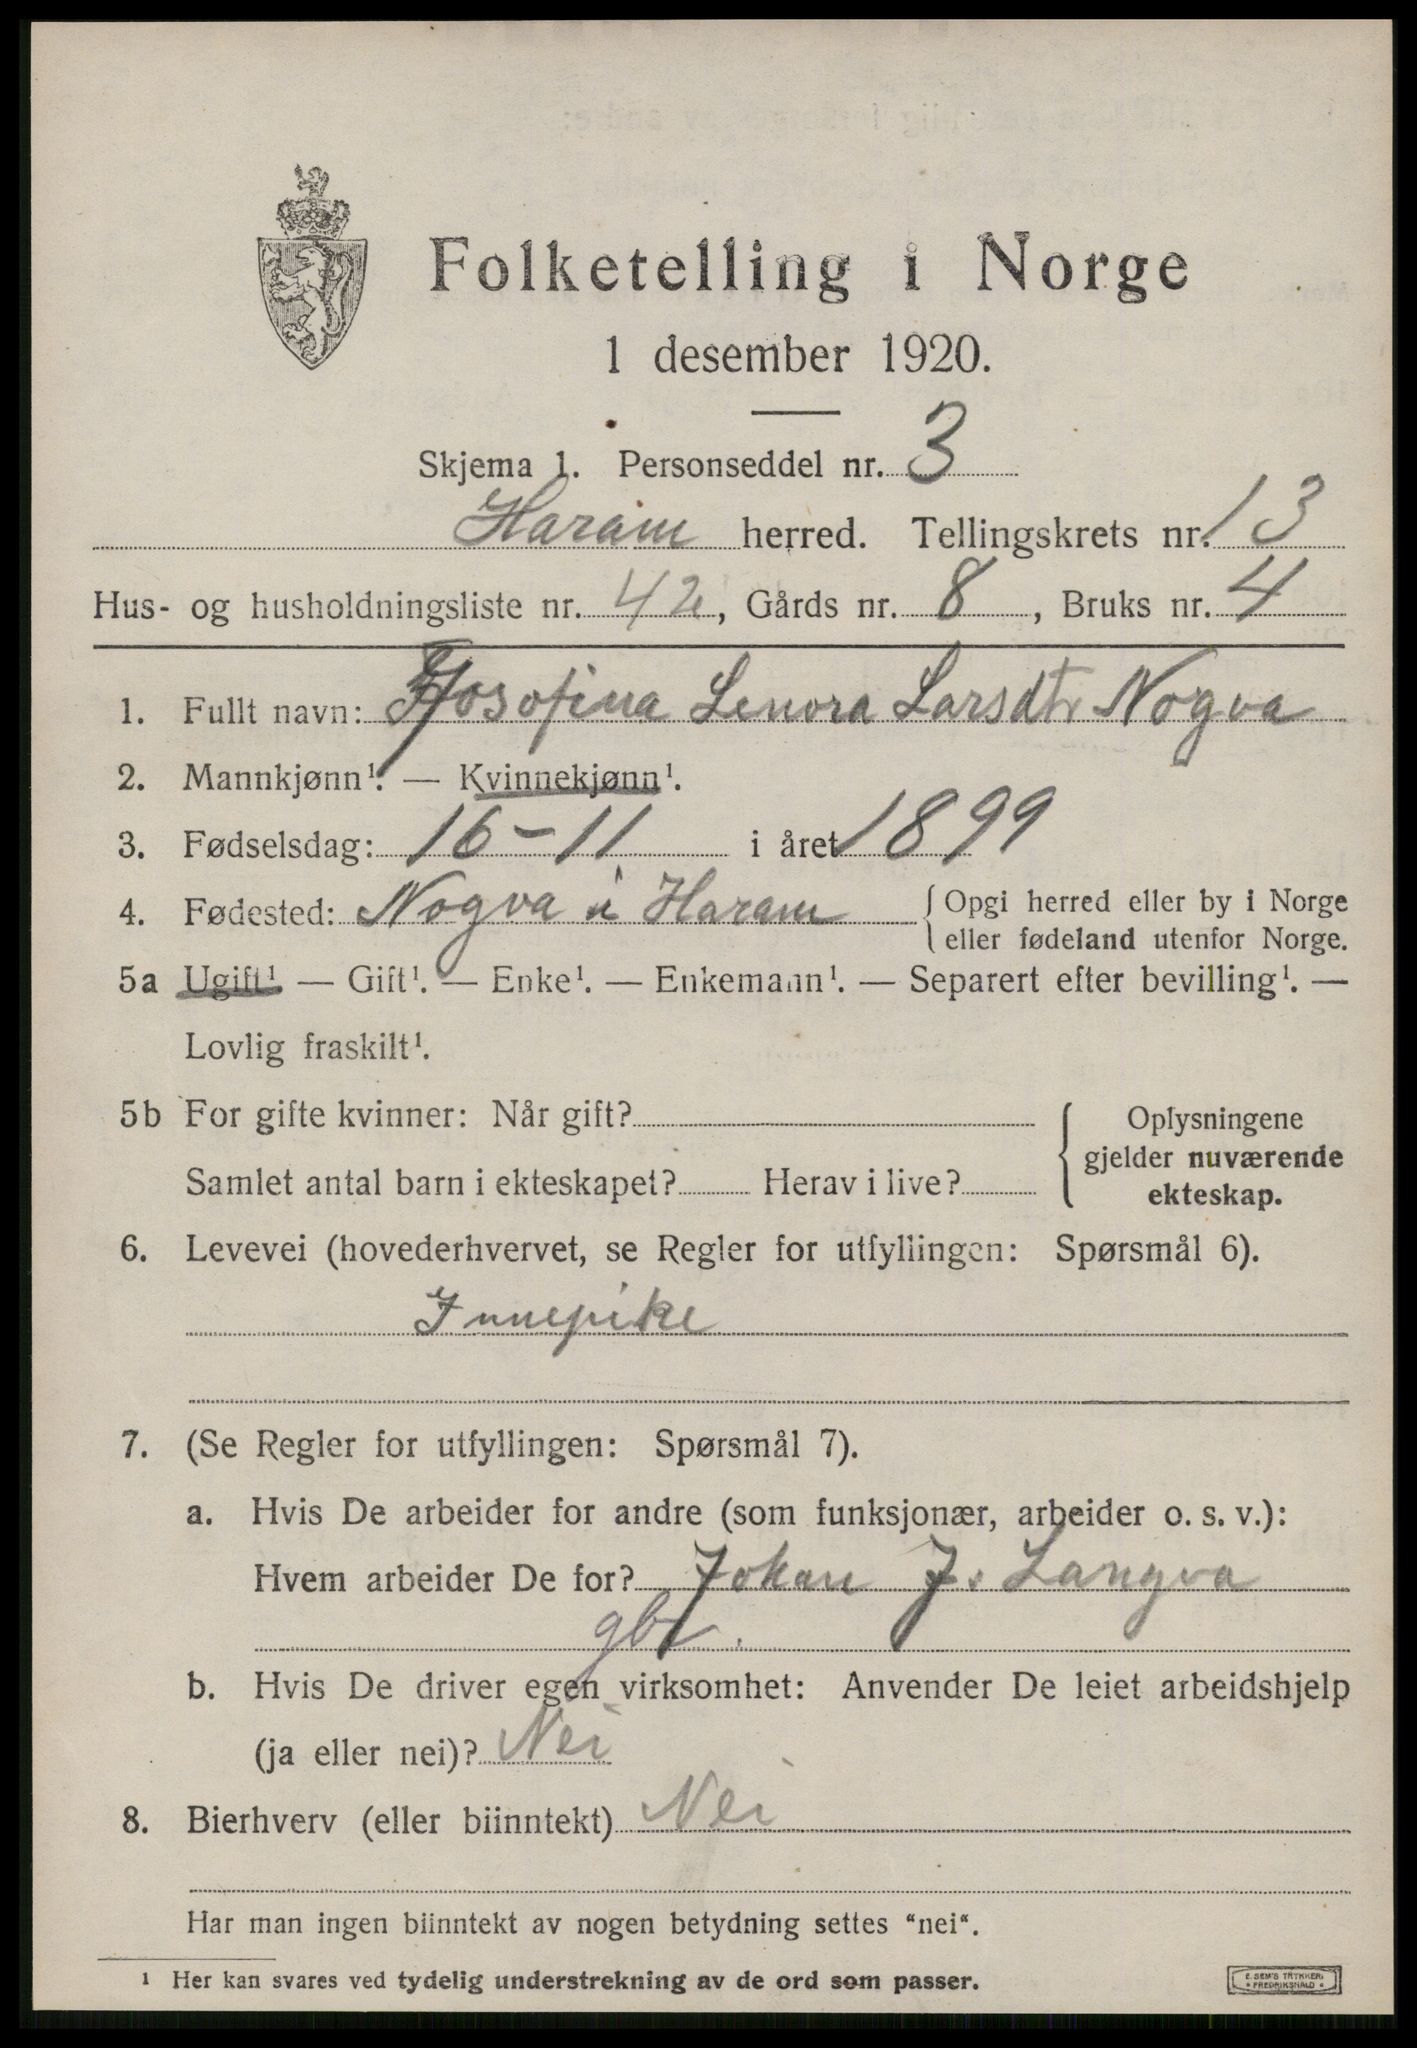 Folketelling i Norge
1 desember 1920.
Skjema 1. Personseddel nr. 3
Haram herred. Tellingskrets nr. 13
Hus- og husholdningsliste nr. 42, Gårds nr. 8, Bruks nr. 4
1. Fullt navn: Josofina Lenora Larsdtr Nogva
2. Mannkjønn¹. — Kvinnekjønn¹.
3. Fødselsdag: 16-11 i året 1899
4. Fødested: Nogva i Haram { Opgi herred eller by i Norge
eller fødeland utenfor Norge.
5a Ugift¹. — Gift¹. — Enke¹. — Enkemann¹. — Separert efter bevilling¹. —
Lovlig fraskilt¹.
5b For gifte kvinner: Når gift? { Oplysningene
gjelder nuværende
Samlet antal barn i ekteskapet? Herav i live?
ekteskap.
6. Levevei (hovederhvervet, se Regler for utfyllingen: Spørsmål 6).
Innepike
7. (Se Regler for utfyllingen: Spørsmål 7).
a. Hvis De arbeider for andre (som funksjonær, arbeider o. s. v.):
Hvem arbeider De for? Johan J. Langva
gbr.
b. Hvis De driver egen virksomhet: Anvender De leiet arbeidshjelp
(ja eller nei)? Nei
8. Bierhverv (eller biinntekt) Nei
Har man ingen biinntekt av nogen betydning settes "nei".
¹ Her kan svares ved tydelig understrekning av de ord som passer.
E. SEM'S TRYKKERI
FREDRIKSHALD